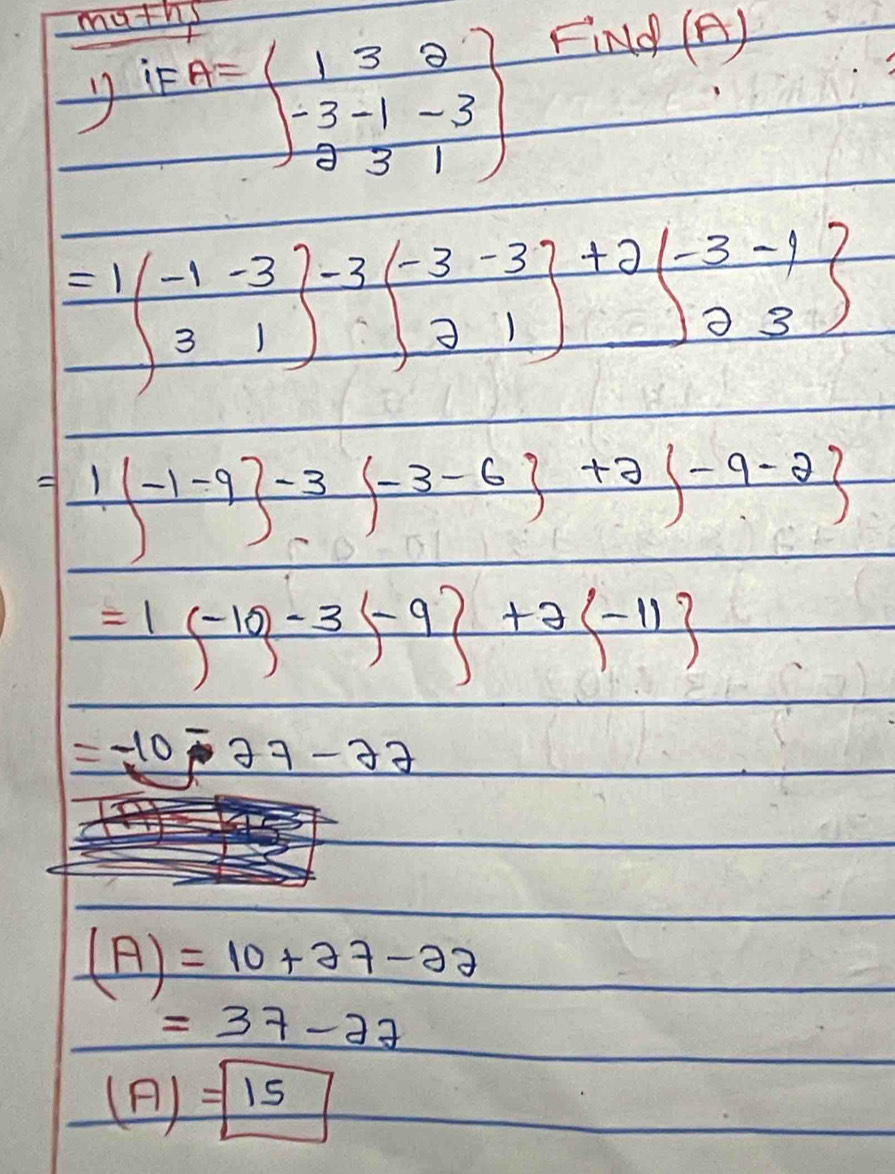 maths
1) if A = { 1 3 2 } Find (A)
-3 -1 -3
2 3 1
= 1 { -1 -3 } -3 { -3 -3 } +2 { -3 -1 }
3 1 2 1 2 3
= 1 { -1-9 } -3 { -3-6 } +2 { -9-2 }
= 1 { -10 } -3 { -9 } +2 { -11 }
= -10 - 27 - 22
(A) = 10 + 27 - 22
= 37 - 22
(A) = 15